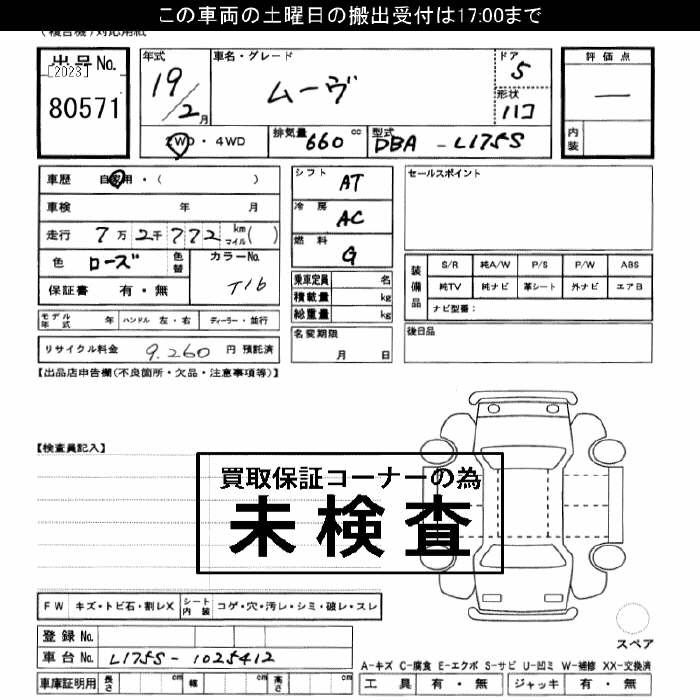 この車両の土曜日の搬出受付は17:00まで
(複合機)対応用紙
出品No.
[2023]
80571
年式
19/2月
車名・グレード
ムーヴ
ドア
5
形状
ハコ
評価点
—
内装
2WD・4WD
排気量 660 cc
型式 DBA - L175S
車歴 自家用・( )
車検 年 月
走行 7万2千772 km マイル( )
色 ローズ 色替
カラーNo. T16
保証書 有・無
シフト AT
冷房 AC
燃料 G
乗車定員 名
積載量 kg
総重量 kg
名変期限
月 日
セールスポイント
装備品
S/R 純A/W P/S P/W ABS
純TV 純ナビ 革シート 外ナビ エアB
ナビ型番:
後日品
モデル年式 年 ハンドル 左・右 ディーラー・並行
リサイクル料金 9.260 円 預託済
【出品店申告欄(不良箇所・欠品・注意事項等)】
【検査員記入】
買取保証コーナーの為
未検査
FW キズ・トビ石・割レX シート内装 コゲ・穴・汚レ・シミ・破レ・スレ
登録No.
車台No. L175S-1025412
車庫証明用 長さ cm 幅 cm 高さ cm
スペア
A-キズ C-腐食 E-エクボ S-サビ U-凹ミ W-補修 XX-交換済
工具 有・無 ジャッキ 有・無